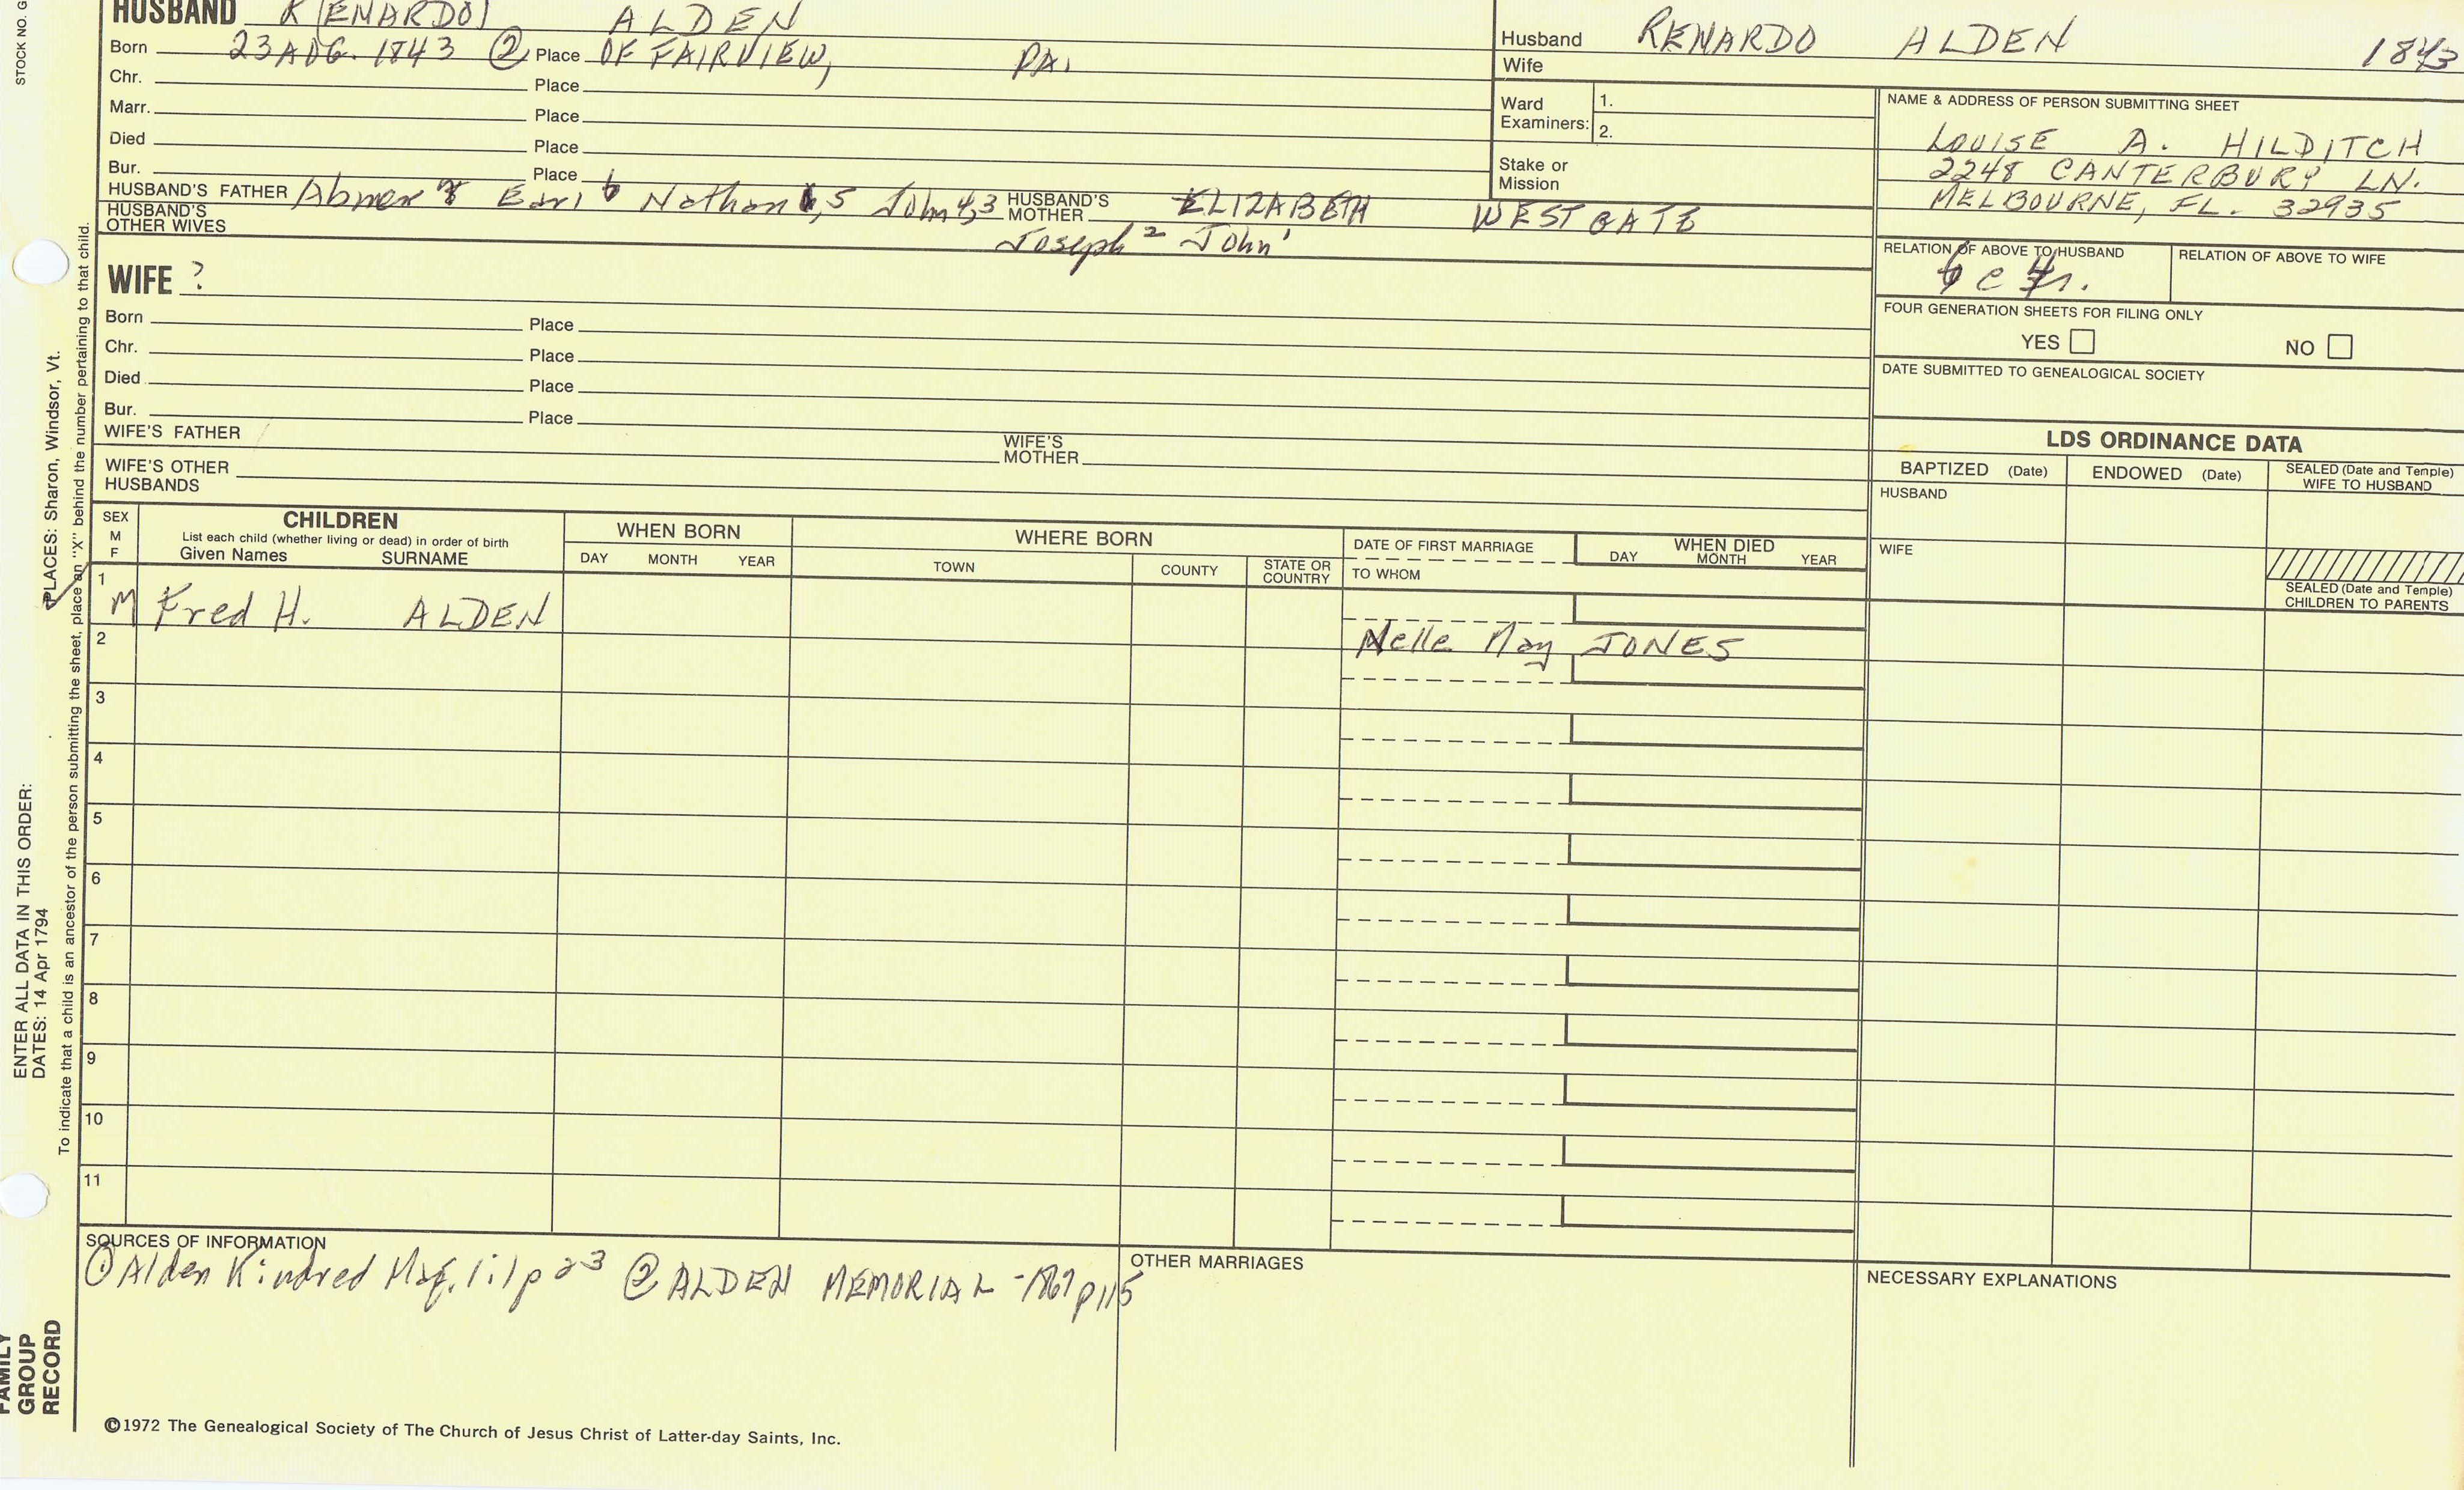 HUSBAND R(ENARDO) ALDEN
Born 23 AUG. 1843 ② Place OF FAIRVIEW, PA.
Chr. Place
Marr. Place
Died Place
Bur. Place
HUSBAND'S FATHER Abner Earl 6 Nathan 5 John 4,3 HUSBAND'S MOTHER ELIZABETH WESTGATE
HUSBAND'S OTHER WIVES Joseph 2 John 1
Husband RENARDO ALDEN 1843
Wife
Ward Examiners: 1.
2.
Stake or Mission
NAME & ADDRESS OF PERSON SUBMITTING SHEET
LOUISE A. HILDITCH
2248 CANTERBURY LN.
MELBOURNE, FL. 32935
RELATION OF ABOVE TO HUSBAND RELATION OF ABOVE TO WIFE
FOUR GENERATION SHEETS FOR FILING ONLY
YES NO
DATE SUBMITTED TO GENEALOGICAL SOCIETY
WIFE ?
Born Place
Chr. Place
Died Place
Bur. Place
WIFE'S FATHER WIFE'S MOTHER
WIFE'S OTHER HUSBANDS
LDS ORDINANCE DATA
BAPTIZED (Date) ENDOWED (Date) SEALED (Date and Temple) WIFE TO HUSBAND
HUSBAND
WIFE
SEALED (Date and Temple) CHILDREN TO PARENTS
SEX M F
CHILDREN
List each child (whether living or dead) in order of birth
Given Names SURNAME
WHEN BORN
DAY MONTH YEAR
WHERE BORN
TOWN COUNTY STATE OR COUNTRY
DATE OF FIRST MARRIAGE
TO WHOM
WHEN DIED
DAY MONTH YEAR
1 M Fred H. ALDEN
Nelle May JONES
2
3
4
5
6
7
8
9
10
11
SOURCES OF INFORMATION
① Alden Kindred Mag. 1:1 p 23 ② ALDEN MEMORIAL - 1867 p 115
OTHER MARRIAGES
NECESSARY EXPLANATIONS
©1972 The Genealogical Society of The Church of Jesus Christ of Latter-day Saints, Inc.
STOCK NO. G
ENTER ALL DATA IN THIS ORDER:
DATES: 14 Apr 1794
PLACES: Sharon, Windsor, Vt.
To indicate that a child is an ancestor of the person submitting the sheet, place an "X" behind the number pertaining to that child.
FAMILY
GROUP
RECORD